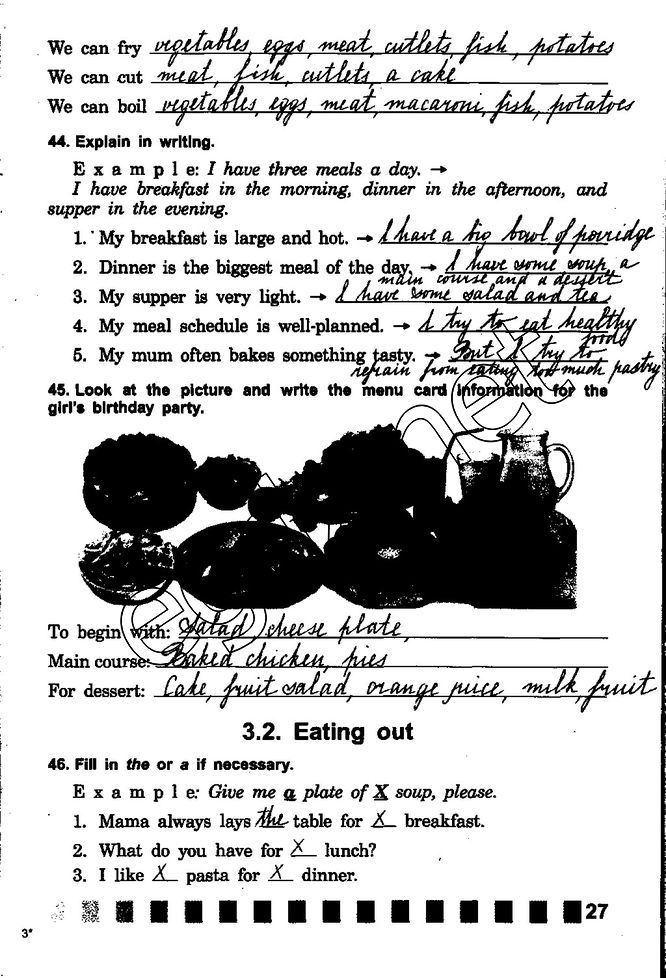 We can fry vegetables, eggs, meat, cutlets, fish, potatoes
We can cut meat, fish, cutlets, a cake
We can boil vegetables, eggs, meat, macaroni, fish, potatoes
44. Explain in writing.
E x a m p l e: I have three meals a day. →
I have breakfast in the morning, dinner in the afternoon, and
supper in the evening.
1. My breakfast is large and hot. → I have a big bowl of porridge
2. Dinner is the biggest meal of the day. → I have some soup, a
main course and a dessert
3. My supper is very light. → I have some salad and tea
4. My meal schedule is well-planned. → I try to eat healthy
food
5. My mum often bakes something tasty. → But I try to
refrain from eating too much pastry
45. Look at the picture and write the menu card information for the
girl's birthday party.
To begin with: Salad, cheese plate,
Main course: Baked chicken, pies
For dessert: Cake, fruit salad, orange juice, milk, fruit
3.2. Eating out
46. Fill in the or a if necessary.
E x a m p l e: Give me a plate of X soup, please.
1. Mama always lays the table for X breakfast.
2. What do you have for X lunch?
3. I like X pasta for X dinner.
27
3*